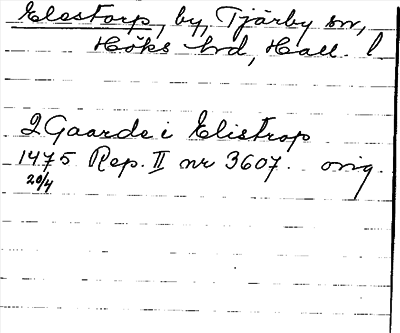 Elestorp, by, Tjärby sn,
Höks hd, Hall. l
2 Gaarde i Elistrop
1475 Rep. II nr 3607. orig.
20/4